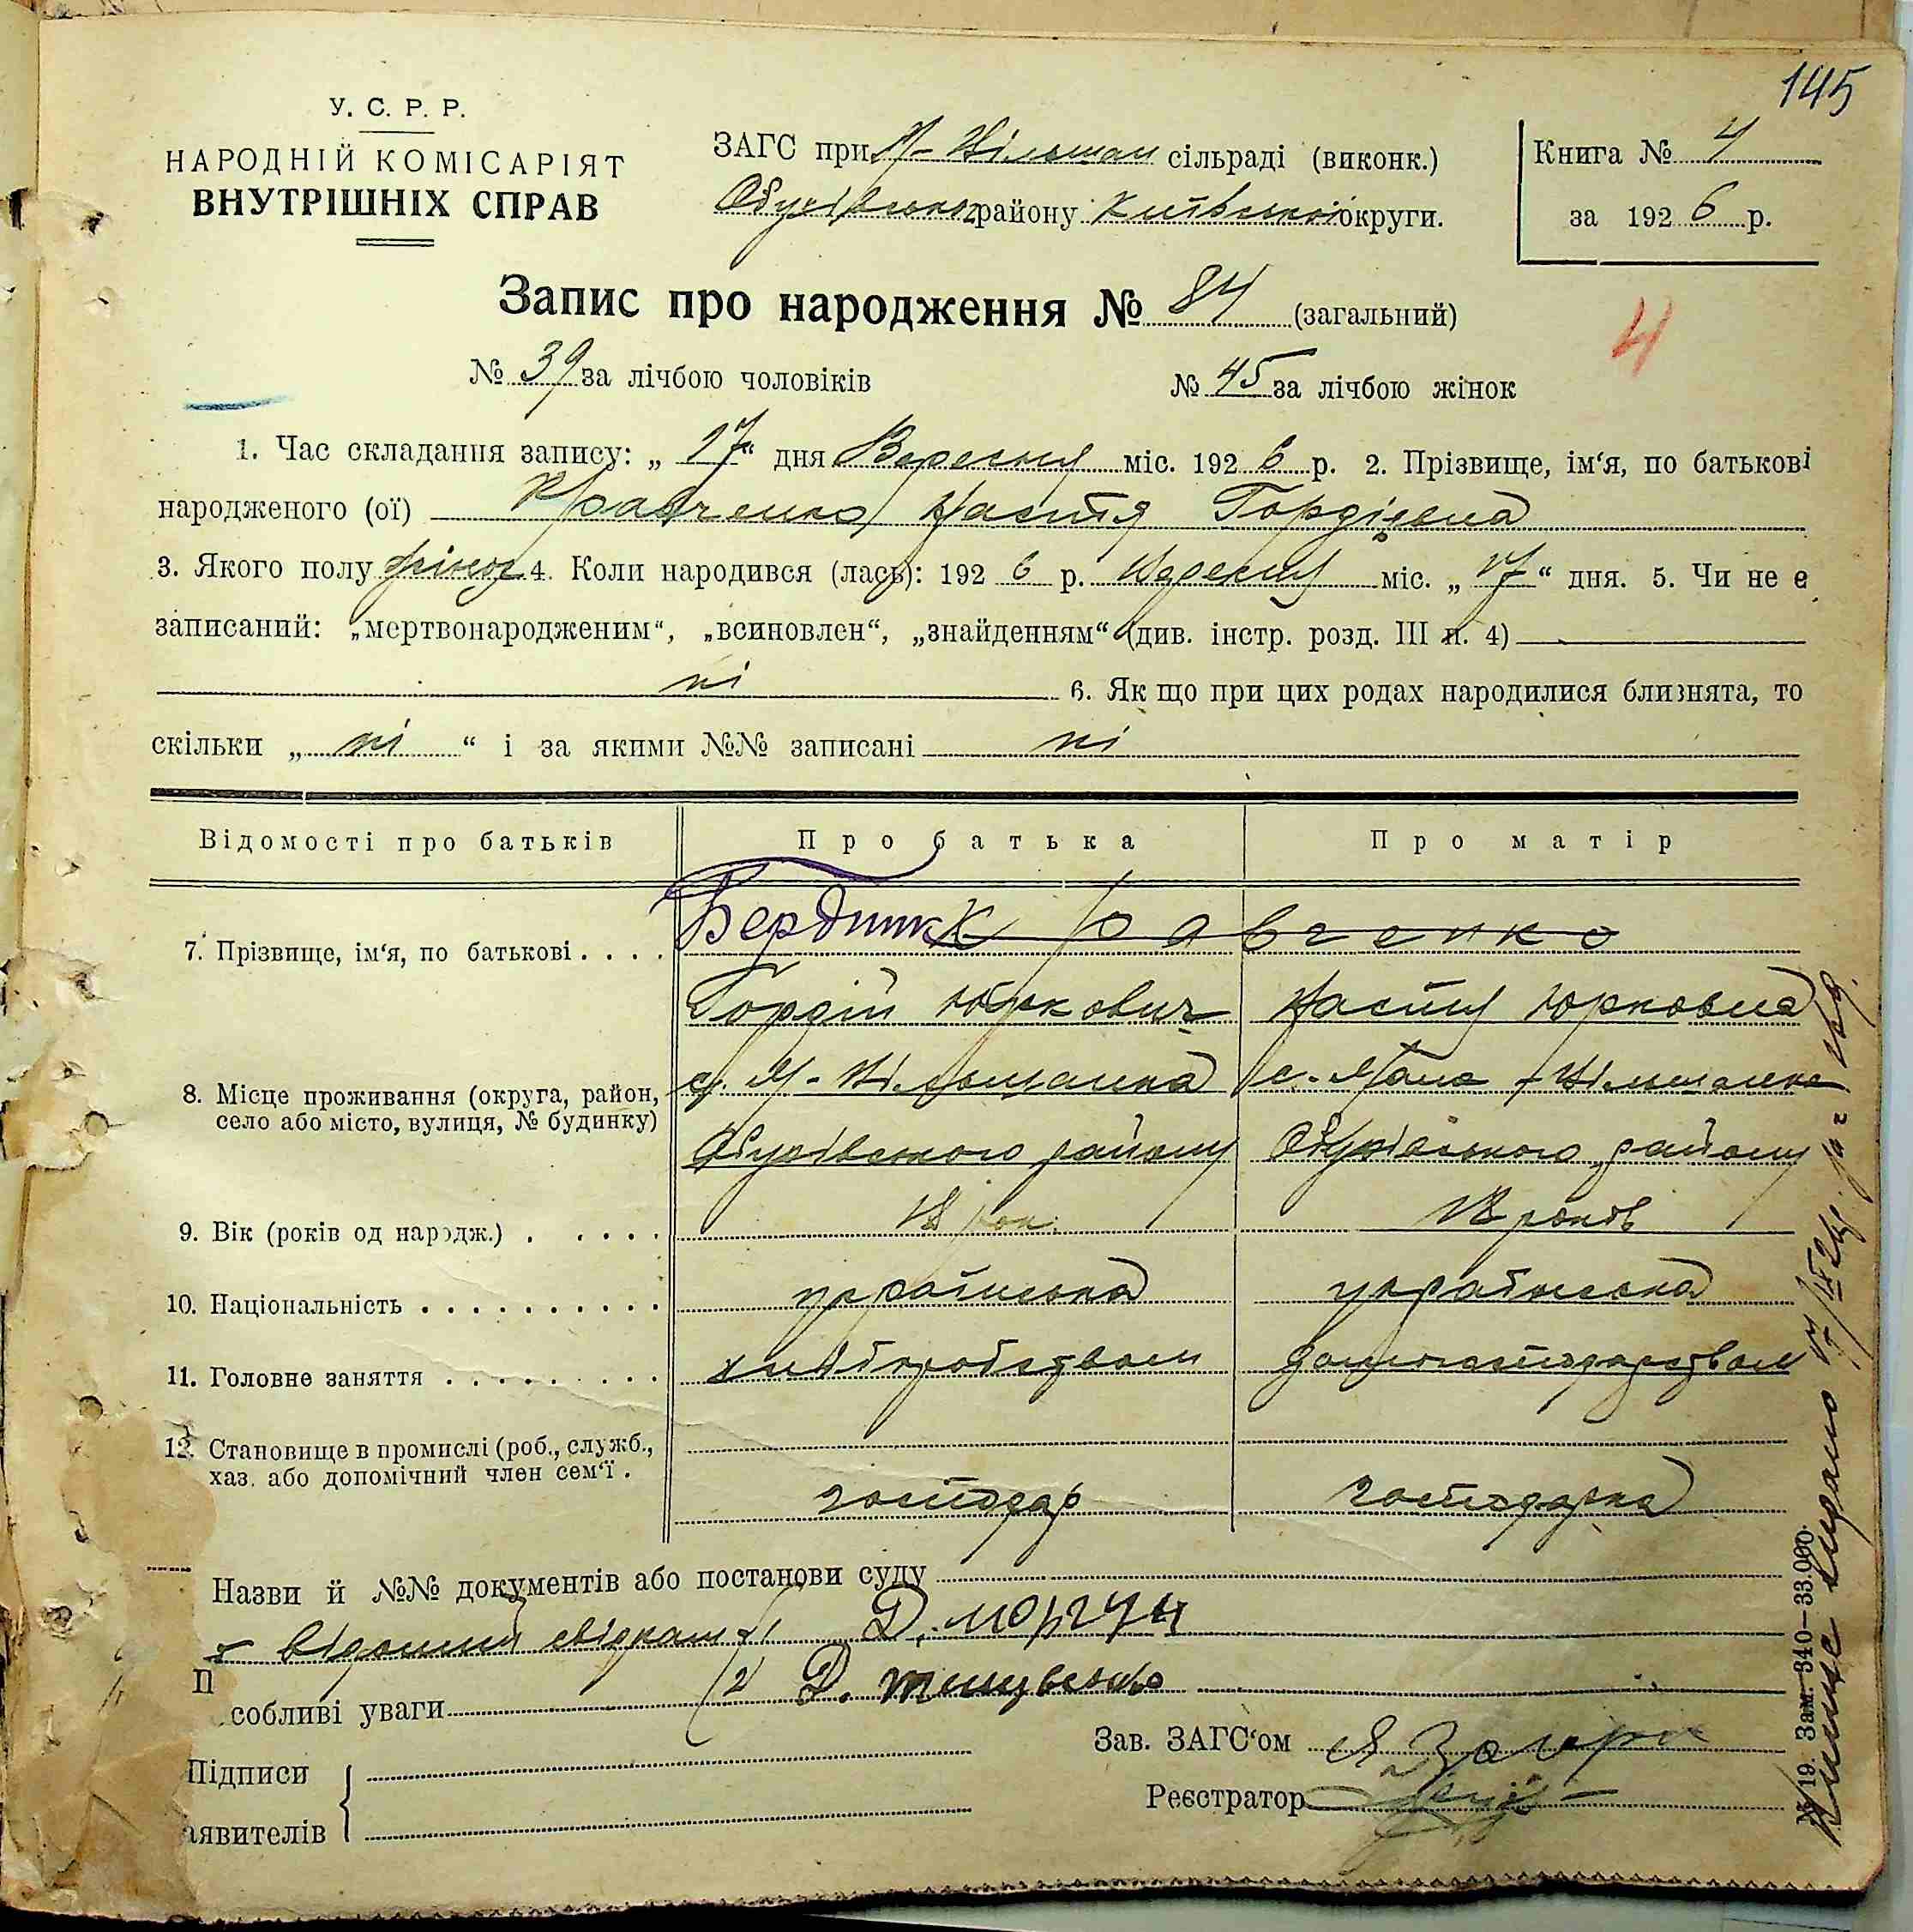 145
У. С. Р. Р.
НАРОДНІЙ КОМІСАРІЯТ
ВНУТРІШНІХ СПРАВ
ЗАГС при М-Вільшан сільраді (виконк.)
Обухівського району Київської округи.
Книга № 4
за 1926 р.
Запис про народження № 84 (загальний)
4
№ 39 за лічбою чоловіків № 45 за лічбою жінок
1. Час складання запису: „ 17 “ дня Вересня міс. 1926 р. 2. Прізвище, ім‘я, по батькові
народженого (ої) Кравченко Настя Гордієвна
3. Якого полу жіноч 4. Коли народився (лась): 1926 р. Вересня міс. „ 17 “ дня. 5. Чи не є
записаний: „мертвонародженим“, „всиновлен“, „знайденням“ (див. інстр. розд. III п. 4)
ні 6. Як що при цих родах народилися близнята, то
скільки „ ні “ і за якими №№ записані ні
Відомості про батьків Про батька Про матір
7. Прізвище, ім‘я, по батькові . . . . Бердник Кравченко
Гордій Юркович Настя Юрковна
8. Місце проживання (округа, район, с. М-Вільшанка с. Мала-Вільшанка
село або місто, вулиця, № будинку)
Обухівського району Обухівського району
9. Вік (років од народж.) . . . . . 18 рок. 18 років
10. Національність . . . . . . . . . . українська українська
11. Головне заняття . . . . . . . . . хліборобством домогосподарством
12. Становище в промислі (роб., служб.,
хаз. або допомічний член сем‘ї .
господар господарка
Назви й №№ документів або постанови суду
відомий свідкам 1) Д. Моргун
собливі уваги 2) Д.
Зав. ЗАГС‘ом
Підписи
Реєстратор
аявителів
№ 19. Зам. 340—33.000.
видано 17/IX 26